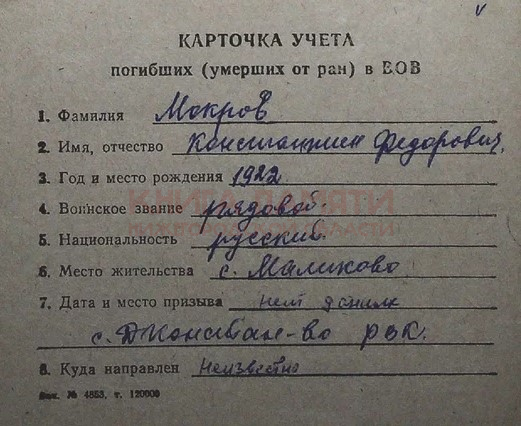 КАРТОЧКА УЧЕТА
погибших (умерших от ран) в ВОВ
1. Фамилия Мокров
2. Имя, отчество Константин Федорович,
3. Год и место рождения 1922
КНИГА ПАМЯТИ
4. Воинское звание рядовой.
НИЖЕГОРОДСКОЙ ОБЛАСТИ
5. Национальность русский
6. Место жительства с. Маликово
7. Дата и место призыва нет
с. РВК.
8. Куда направлен Неизвестно
Зак. № 4853, т. 120000